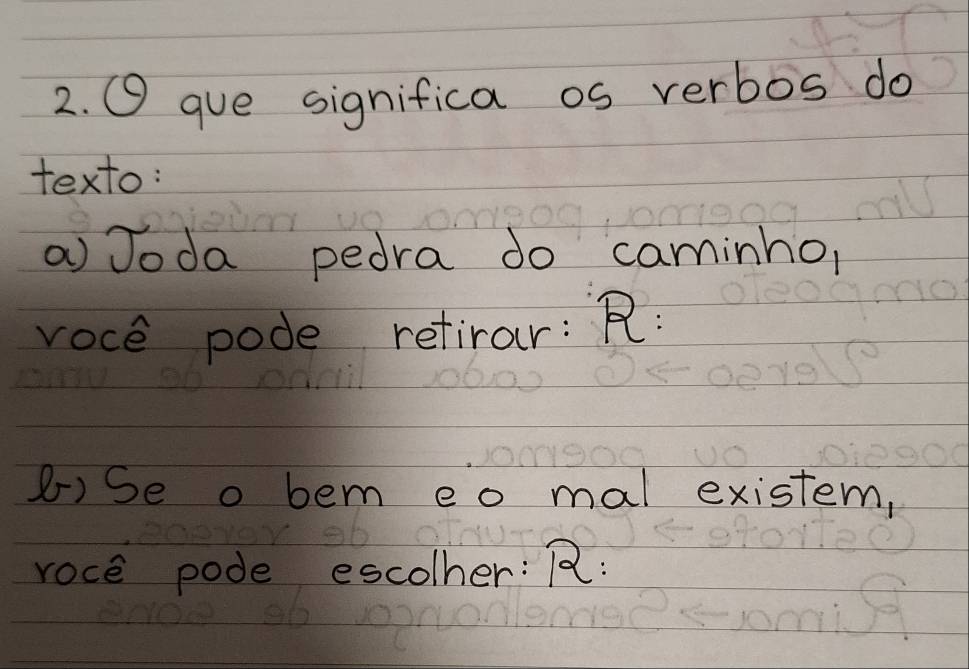 2. O que significa os verbos do
texto:
a) Toda pedra do caminho,
você pode retirar: R:
b) Se o bem e o mal existem,
você pode escolher: R: